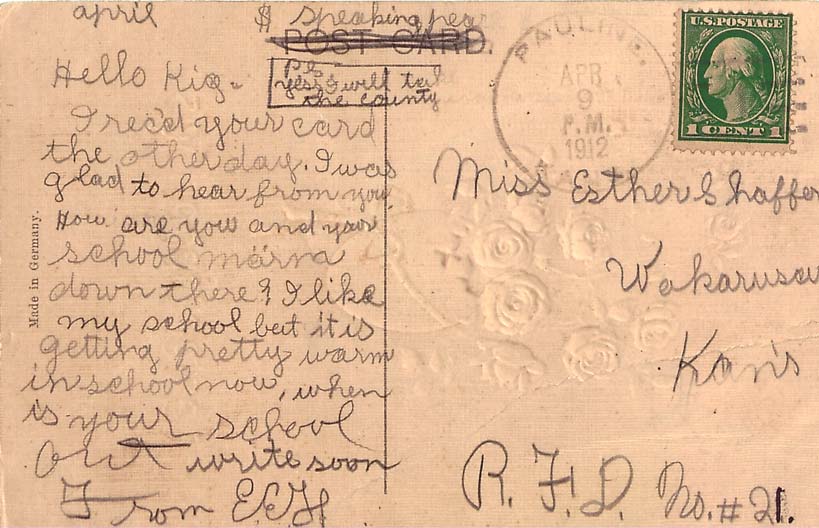 april
$ speaking pear
POST CARD.
P.S.
yess I will tak
the county
Hello Kig.
I rec'd your card
the other day. I was
glad to hear from you.
How are you and your
school marm
down there? I like
my school but it is
getting pretty warm
in school now, when
is your school
out write soon
From E.E.H
Made in Germany.
PAULINE,
APR
9
P.M.
1912
U.S. POSTAGE
1 CENT 1
Miss Esther Shaffer
Wakarusa
Kans
R.F.D. No.# 21.